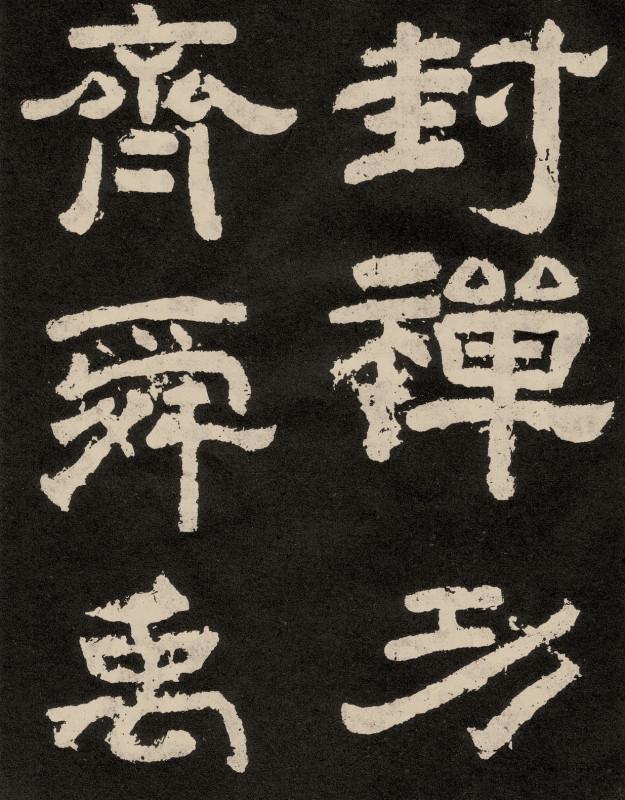 封禪功
齊舜禹